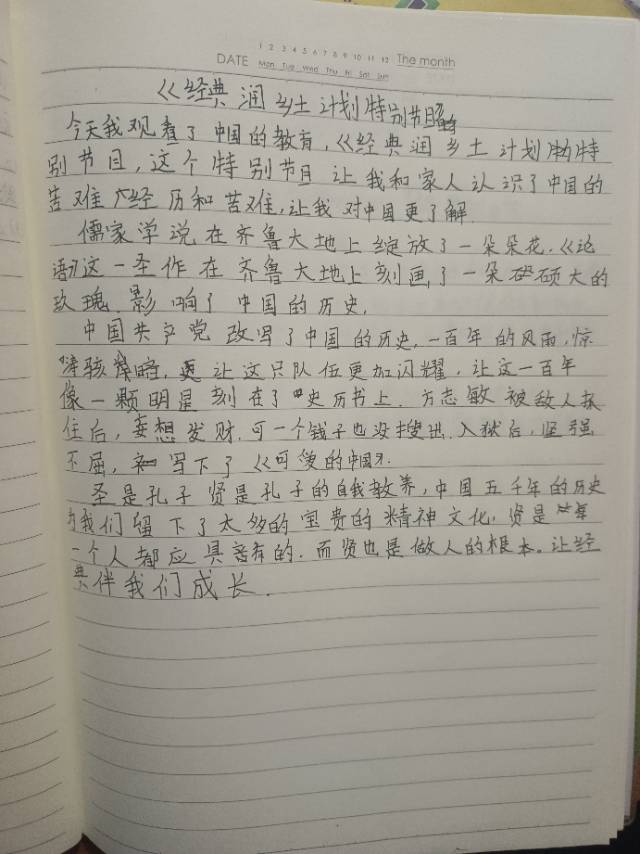 1 2 3 4 5 6 7 8 9 10 11 12
DATE Mon Tue Wed Thu Fri Sat Sun The month
《经典润乡土计划特别节目
今天我观看了中国的教育,《经典润乡土计划特
别节目,这个特别节目让我和家人认识了中国的
苦难经历和苦难,让我对中国更了解.
儒家学说在齐鲁大地上绽放了一朵朵花.《论
语》这一圣作在齐鲁大地上刻画了一朵硕大的
玫瑰影响了中国的历史.
中国共产党改写了中国的历史.一百年的风雨,惊
涛骇 让这只队伍更加闪耀,让这一百年
像一颗明星刻在了史历书上.方志敏被敌人抓
住后,妄想发财.可一个钱子也没搜出.入狱后,坚强
不屈,写下了《可爱的中国》.
圣是孔子贤是孔子的自我教养,中国五千年的历史
为我们留下了太多的宝贵的精神文化,贤是
一个人都应具有的.而贤也是做人的根本。让经
典伴我们成长.